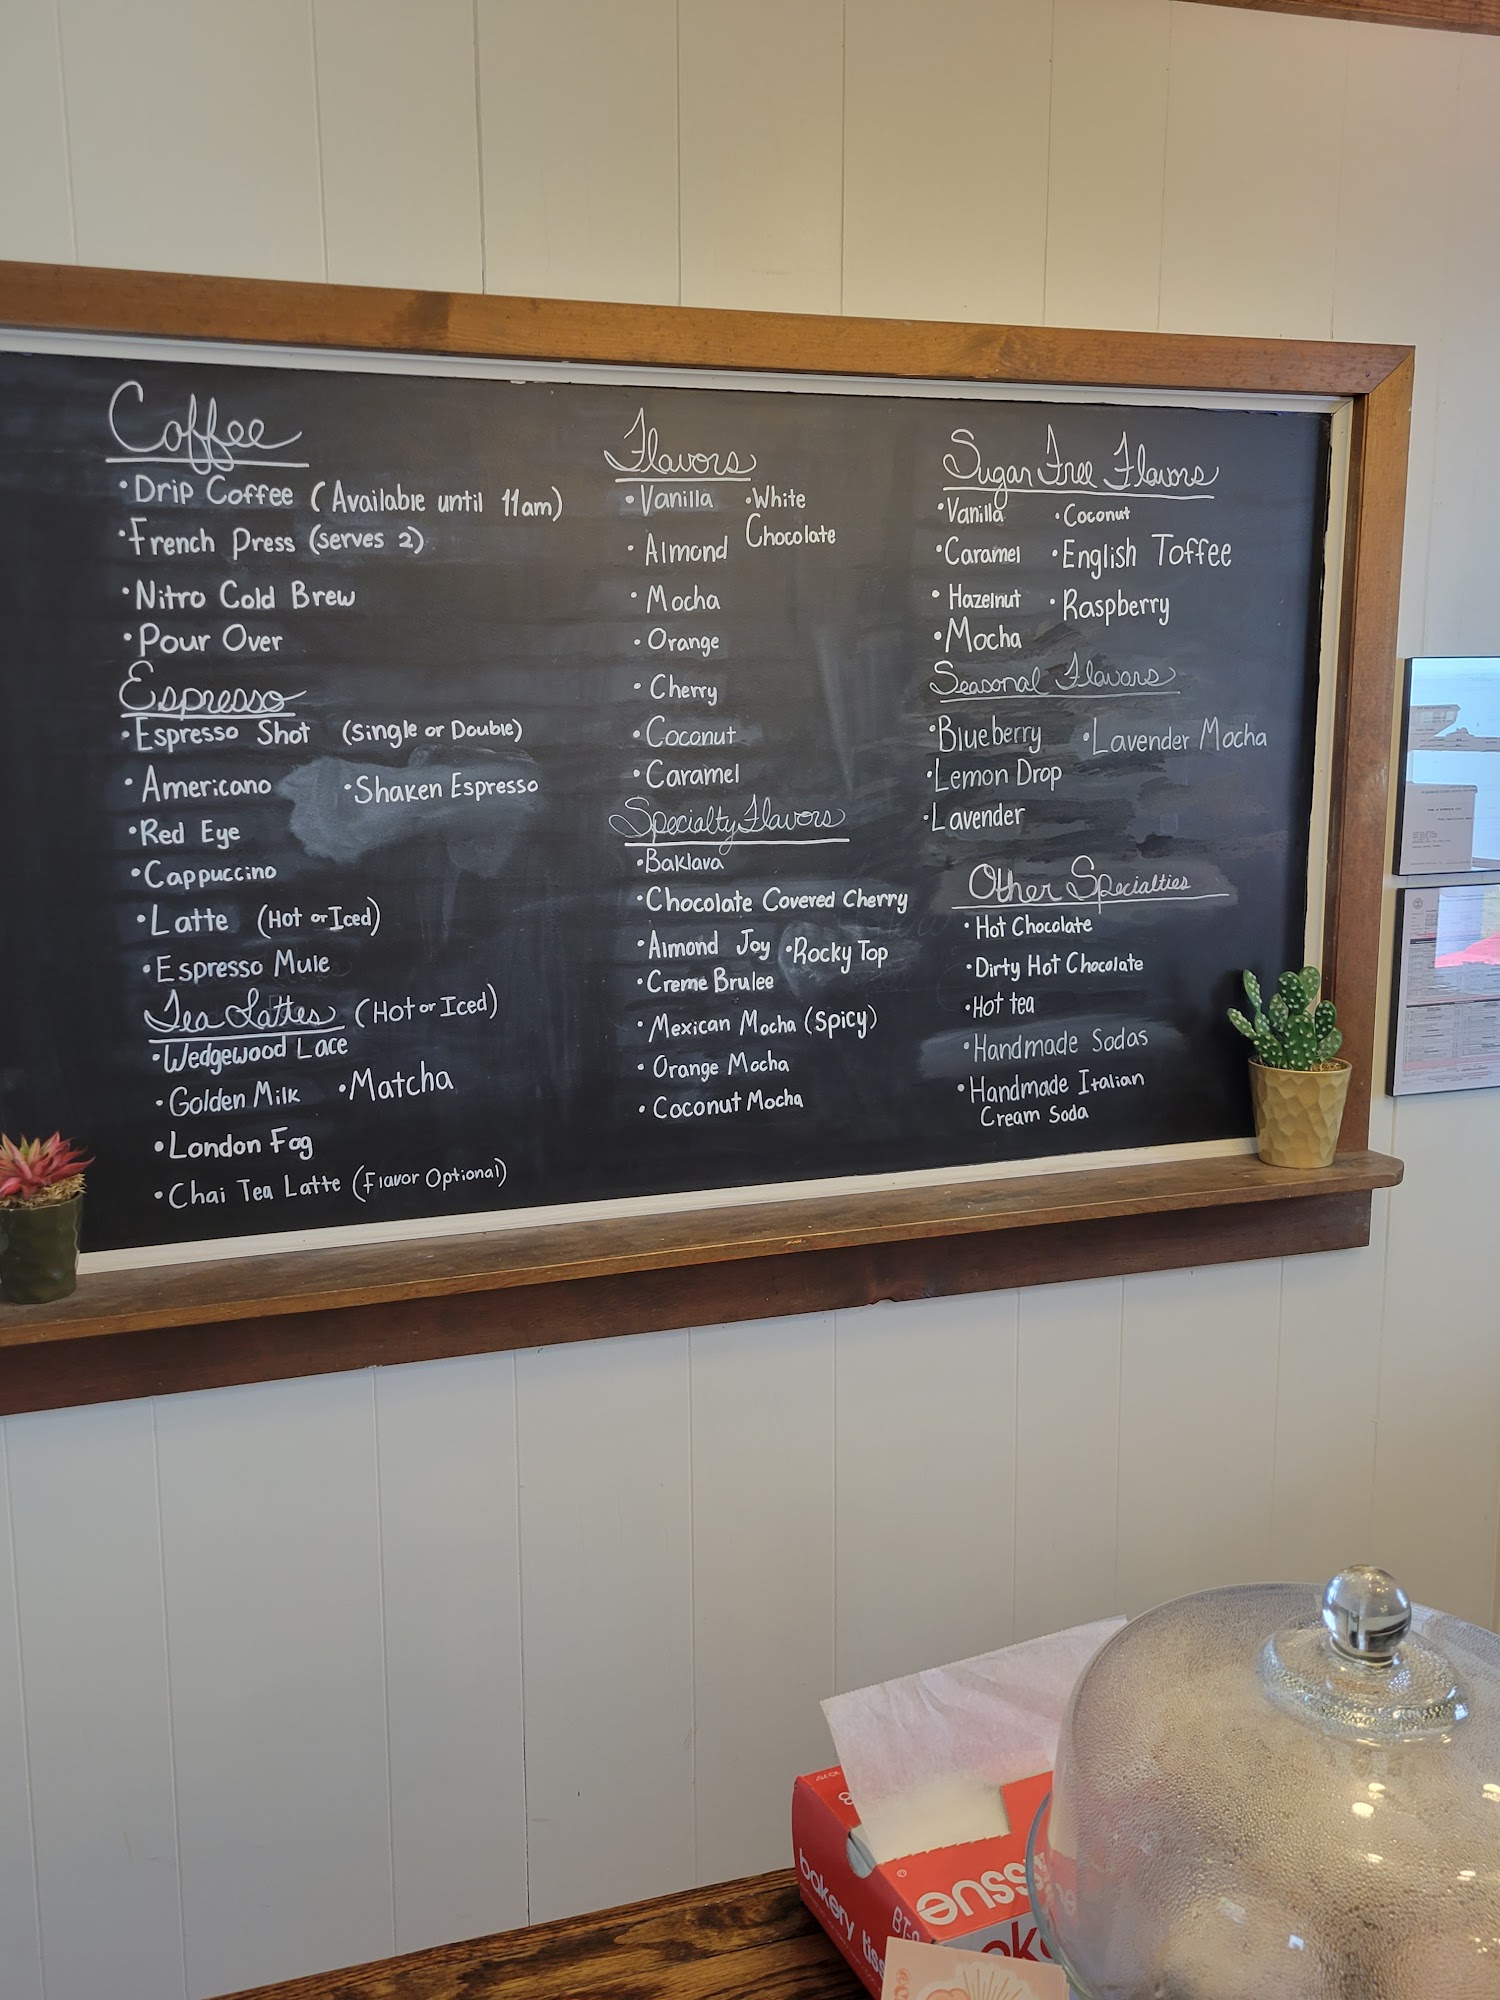 Coffee
• Drip Coffee (Available until 11am)
• French Press (serves 2)
• Nitro Cold Brew
• Pour Over
Espresso
• Espresso Shot (Single or Double)
• Americano • Shaken Espresso
• Red Eye
• Cappuccino
• Latte (Hot or Iced)
• Espresso Mule
Tea Lattes (Hot or Iced)
• Wedgewood Lace
• Golden Milk • Matcha
• London Fog
• Chai Tea Latte (Flavor Optional)
Flavors
• Vanilla • White
Chocolate
• Almond
• Mocha
• Orange
• Cherry
• Coconut
• Caramel
Specialty Flavors
• Baklava
• Chocolate Covered Cherry
• Almond Joy • Rocky Top
• Creme Brulee
• Mexican Mocha (Spicy)
• Orange Mocha
• Coconut Mocha
Sugar Free Flavors
• Vanilla • Coconut
• Caramel • English Toffee
• Hazelnut • Raspberry
• Mocha
Seasonal Flavors
• Blueberry • Lavender Mocha
• Lemon Drop
• Lavender
Other Specialties
• Hot Chocolate
• Dirty Hot Chocolate
• Hot tea
• Handmade Sodas
• Handmade Italian
Cream Soda
bakery